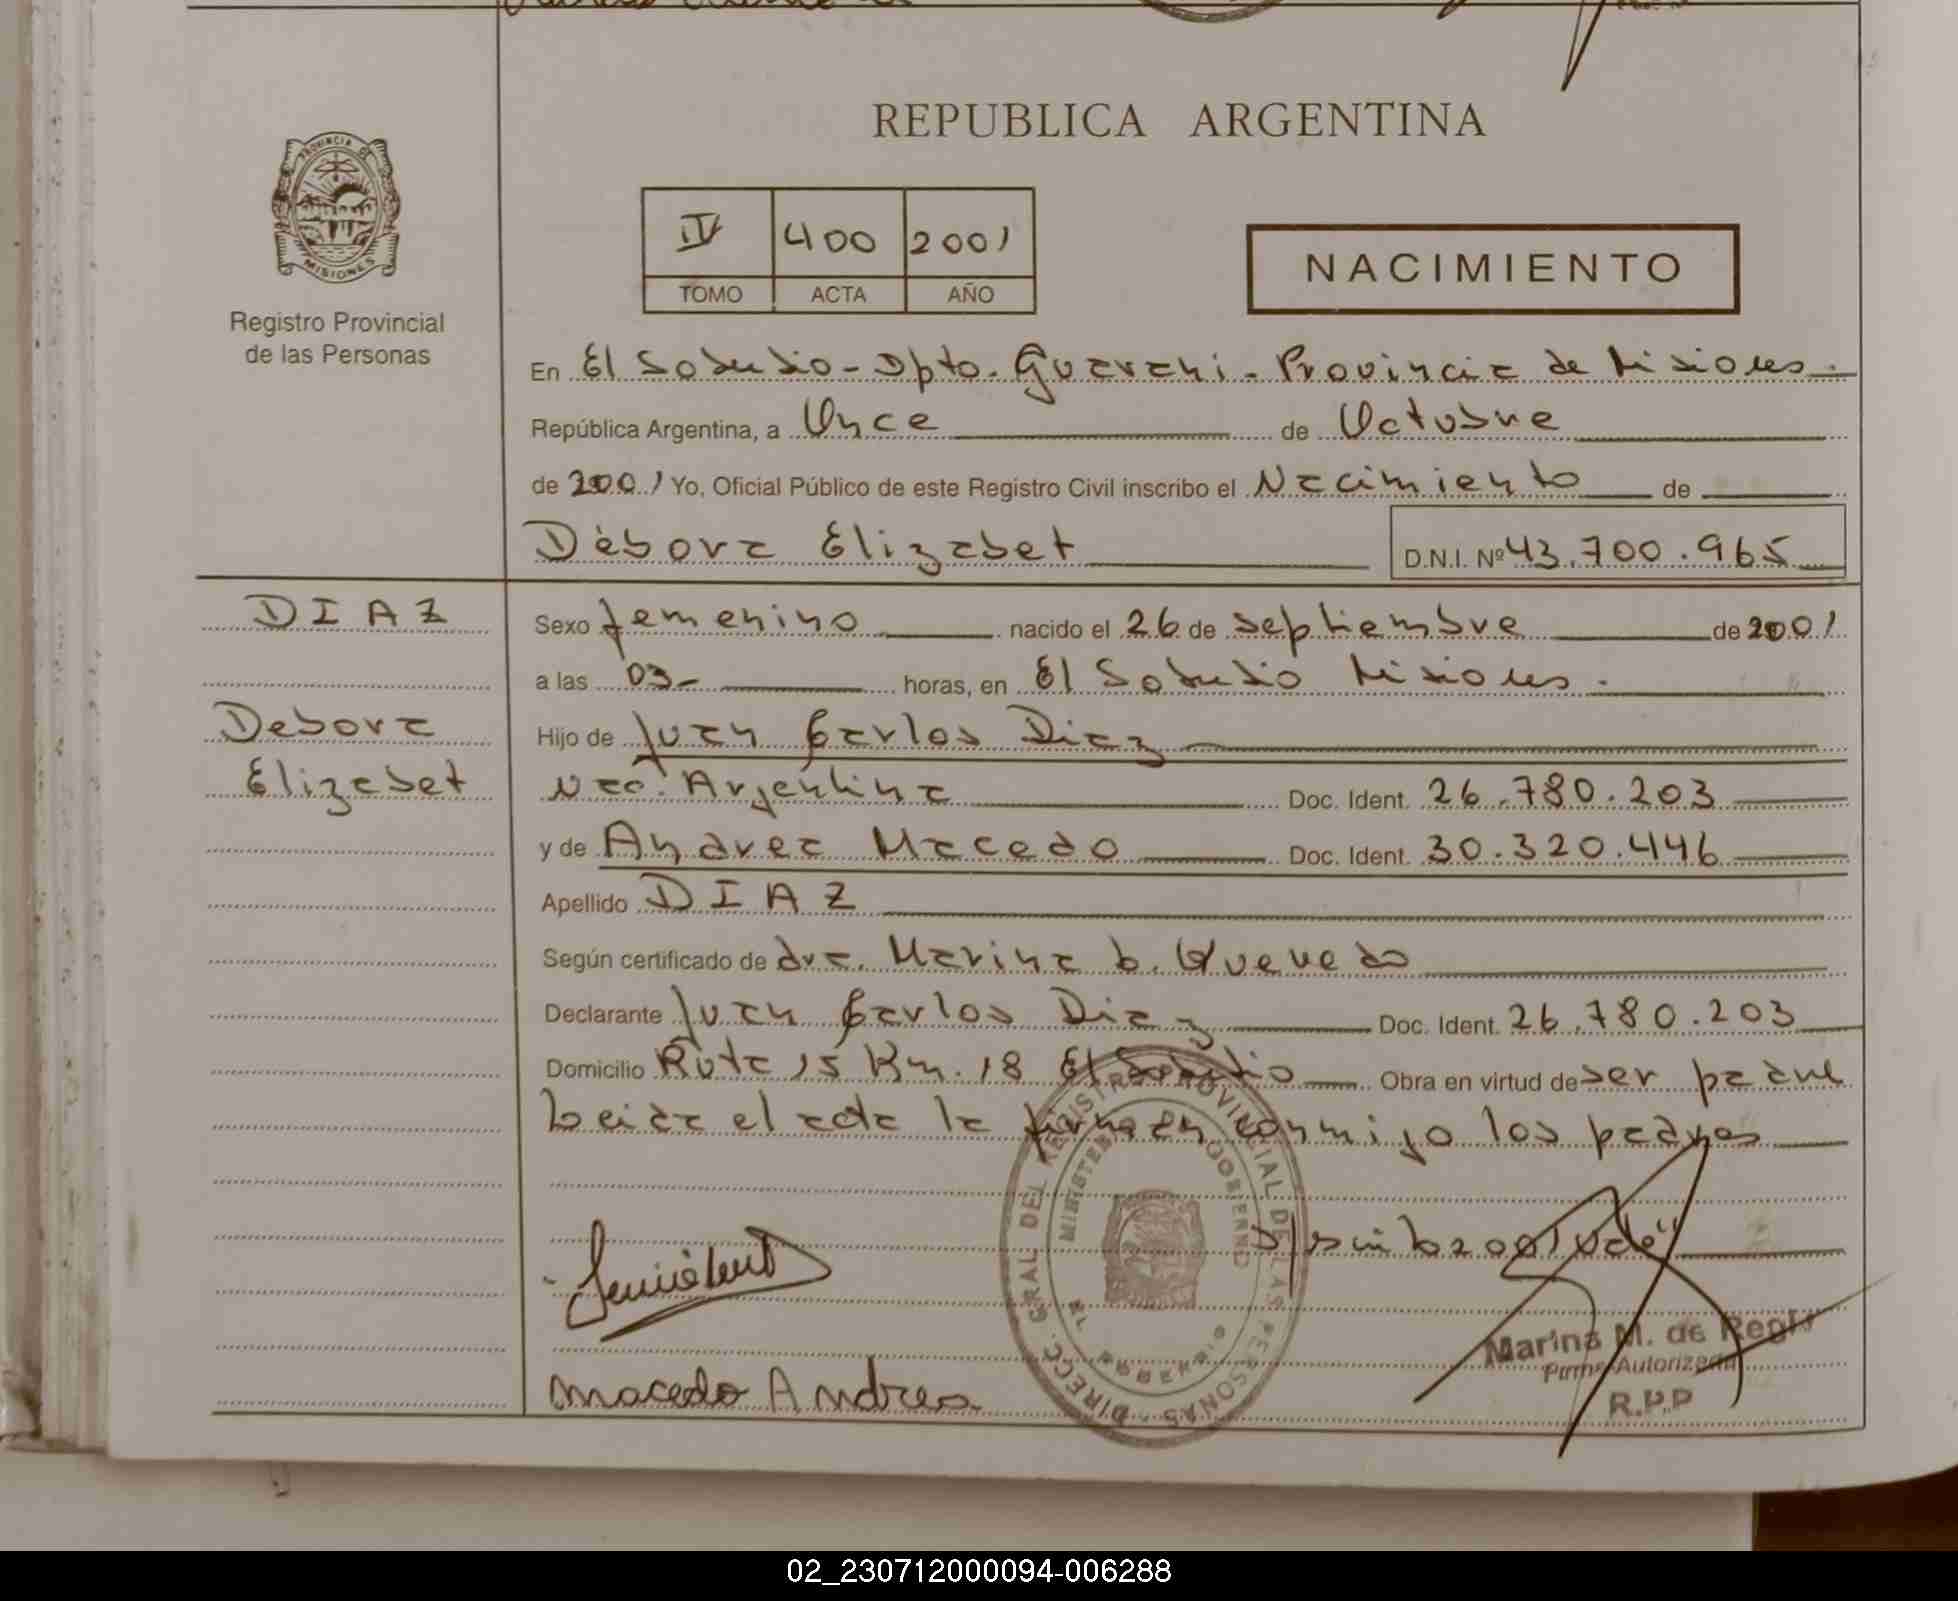 REPUBLICA ARGENTINA
PROVINCIA DE
MISIONES
Registro Provincial
de las Personas
IV 400 2001
TOMO ACTA AÑO
NACIMIENTO
En El Soberbio - Dpto. Guarani - Provincia de Misiones.
República Argentina, a Once de Octubre
de 2001 Yo, Oficial Público de este Registro Civil inscribo el Nacimiento de
Débora Elizabet D.N.I. Nº 43.700.965
DIAZ
Debora
Elizabet
Sexo femenino nacido el 26 de septiembre de 2001
a las 03- horas, en El Soberbio Misiones.
Hijo de Juan Carlos Diaz
Nac. Argentina Doc. Ident. 26.780.203
y de Andrea Macedo Doc. Ident. 30.320.446
Apellido DIAZ
Según certificado de dra. Marina b. Quevedo
Declarante Juan Carlos Diaz Doc. Ident. 26.780.203
Domicilio Ruta 15 Km. 18 El Soberbio Obra en virtud de ser padre
Leida el acta la firman conmigo los padres
DIRECC. GRAL DEL REGISTRO PROVINCIAL DE LAS PERSONAS
MINISTERIO GOBIERNO
EL SOBERBIO
Macedo Andrea
Marina M. de Regis
Firma Autorizada
R.P.P
02_230712000094-006288